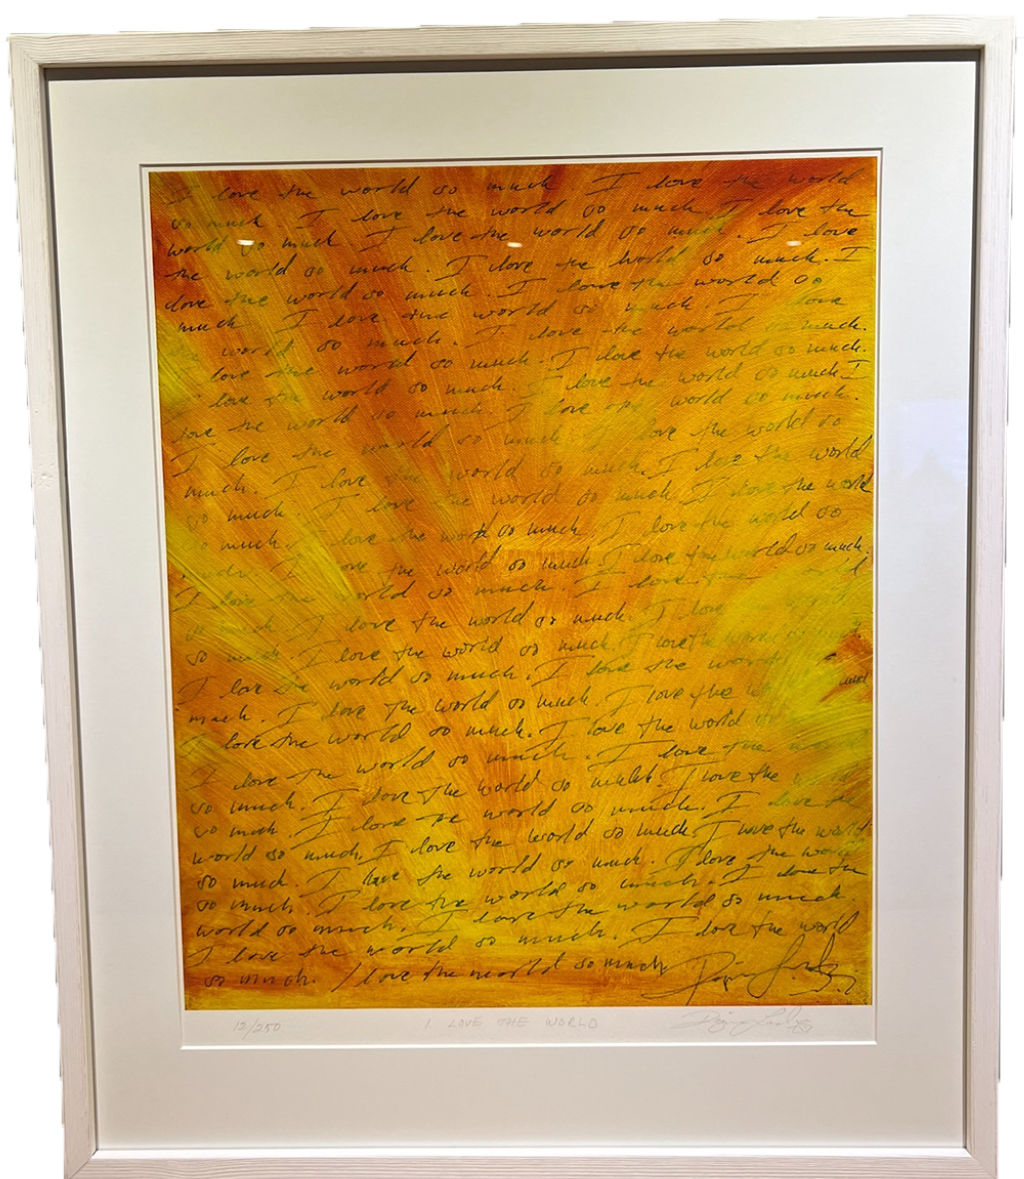 I love the world so much I love the world
so much I love the world so much. I love the
world so much I love the world so much. I love
the world so much. I love the world so much. I
love the world so much. I love the world so
much I love the world so much. I love
the world so much. I love the world so much.
love the world so much. I love the world so much.
love the world so much. I love the world so much I
love the world so much I love the world so much.
I love the world so much I love the world so
much. I love the world so much. I love the world
so much. I love the world so much. I love the world
so much. I love the world so much. I love the world so
I love the world so much. I love the world so much.
I love the world so much. I love
so much. I love the world so much. I love
so much. I love the world so much. I love the world so
I love the world so much. I love the world
much. I love the world so much. I love the
I love the world so much. I love the world
I love the world so much. I love the
so much. I love the world so much. I love the
so much. I love the world so much. I love the
world so much. I love the world so much I love the world
so much. I love the world so much. I love the world
so much. I love the world so much. I love the
world so much. I love the world so much.
I love the world so much. I love the world
so much. I love the world so much
12/250 I LOVE THE WORLD